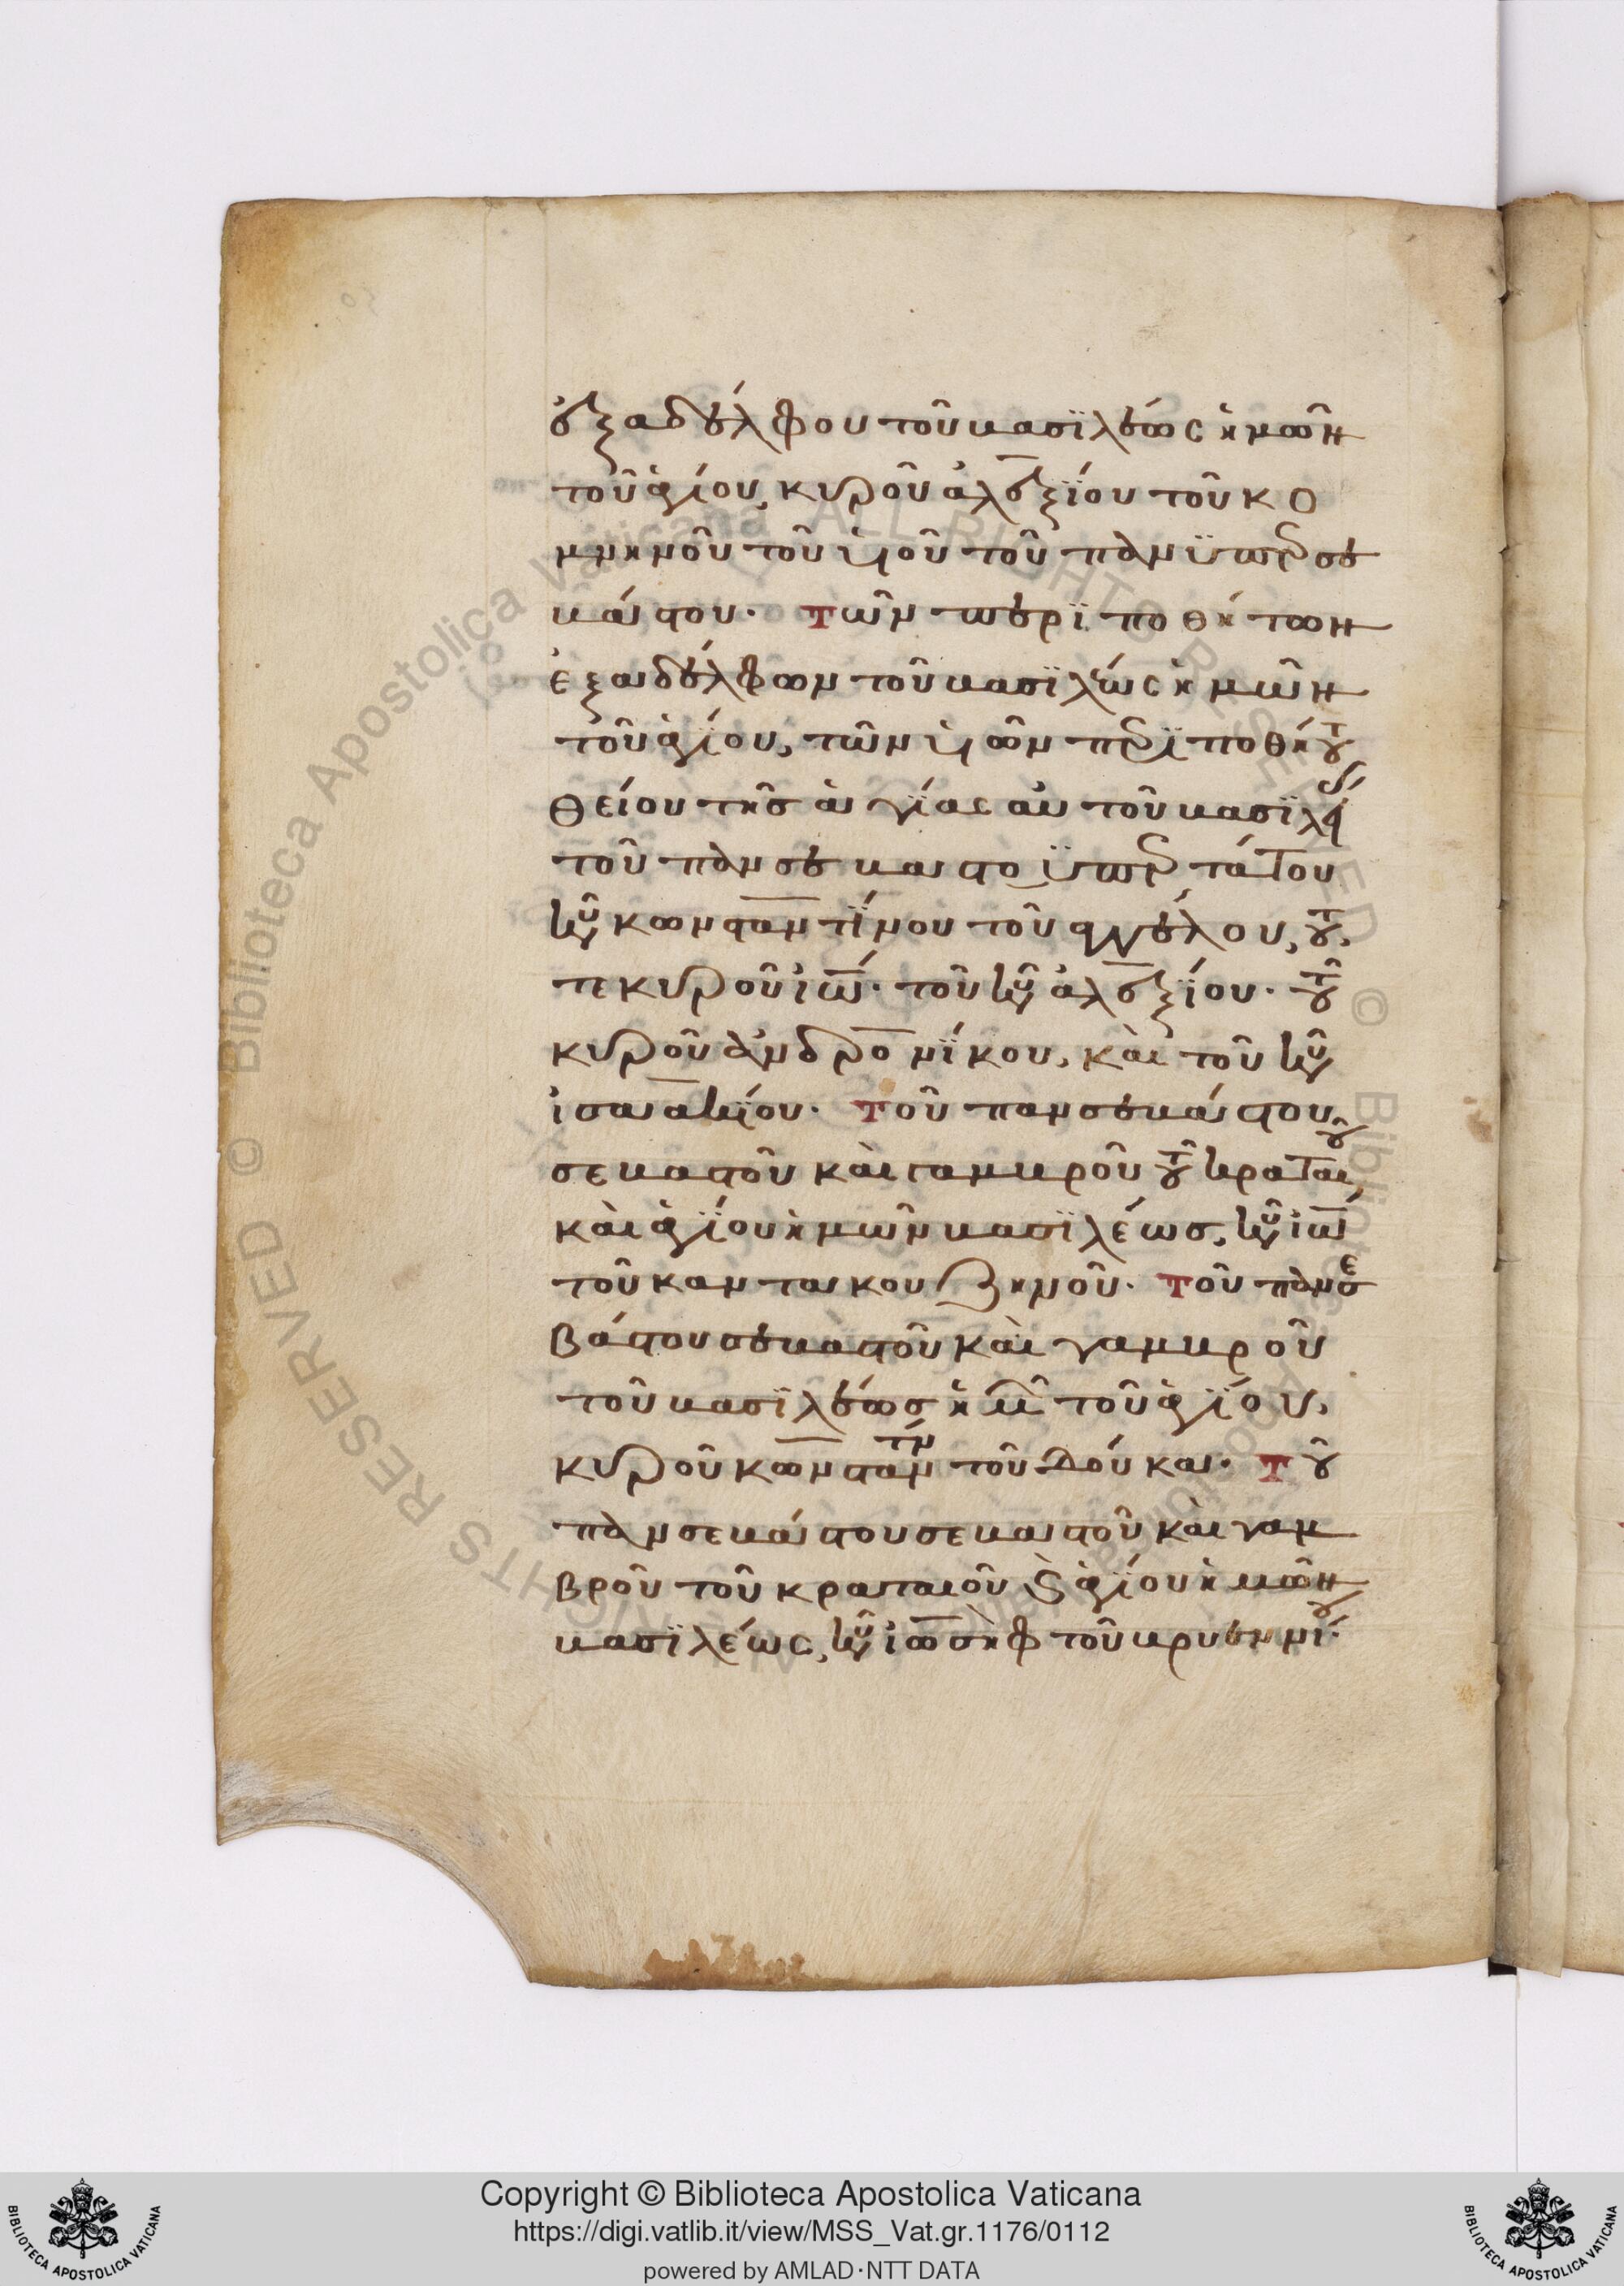 ἐξαδέλφου τοῦ βασϊλέως ἡμῶν
τοῦ ἁγίου, κυροῦ ἀλεξΐου τοῦ κο
μνηνοῦ τοῦ υἱοῦ τοῦ πανϋπερσε
βάστου· Τῶν περϊποθήτων
ἐξαδέλφων τοῦ βασϊλέως ἡμῶν
τοῦ ἁγίου, τῶν υἱῶν τοῦ πρϊποθήτου
θείου τῆς ἁγίας αὐτοῦ βασϊλεί
τοῦ πανσεβαστοϋπερτάτου
κυροῦ κωνσταντΐνου τοῦ ἀγγέλου, τοῦ
τε κυροῦ ἰω· τοῦ κυροῦ ἀλεξΐου· τοῦ
κυροῦ ἀνδρονΐκου, καὶ τοῦ κυροῦ
ἰσαακΐου· Τοῦ πανσεβάστου
σεβαστοῦ καὶ γαμβροῦ τοῦ κραταιοῦ
καὶ ἁγΐου ἡμῶν βασϊλέως, κυροῦ ἰω
τοῦ καντακουζηνοῦ· Τοῦ πανσε
βάστου σεβαστοῦ καὶ γαμβροῦ
τοῦ βασϊλέως ἡμ τοῦ ἁγΐου,
κυροῦ κωνσταντΐν τοῦ δούκα· Τοῦ
πανσεβάστου σεβαστοῦ καὶ γαμ
βροῦ τοῦ κραταιοῦ ϗ ἁγίου ἡμῶν
βασϊλέως, κυροῦ ἰωσὴφ τοῦ βρυεννίου·
Copyright © Biblioteca Apostolica Vaticana
https://digi.vatlib.it/view/MSS_Vat.gr.1176/0112
powered by AMLAD·NTT DATA
BIBLIOTECA APOSTOLICA VATICANA
BIBLIOTECA APOSTOLICA VATICANA